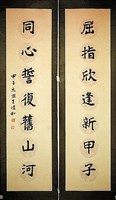 屈指欣逢新甲子
同心誓復舊山河